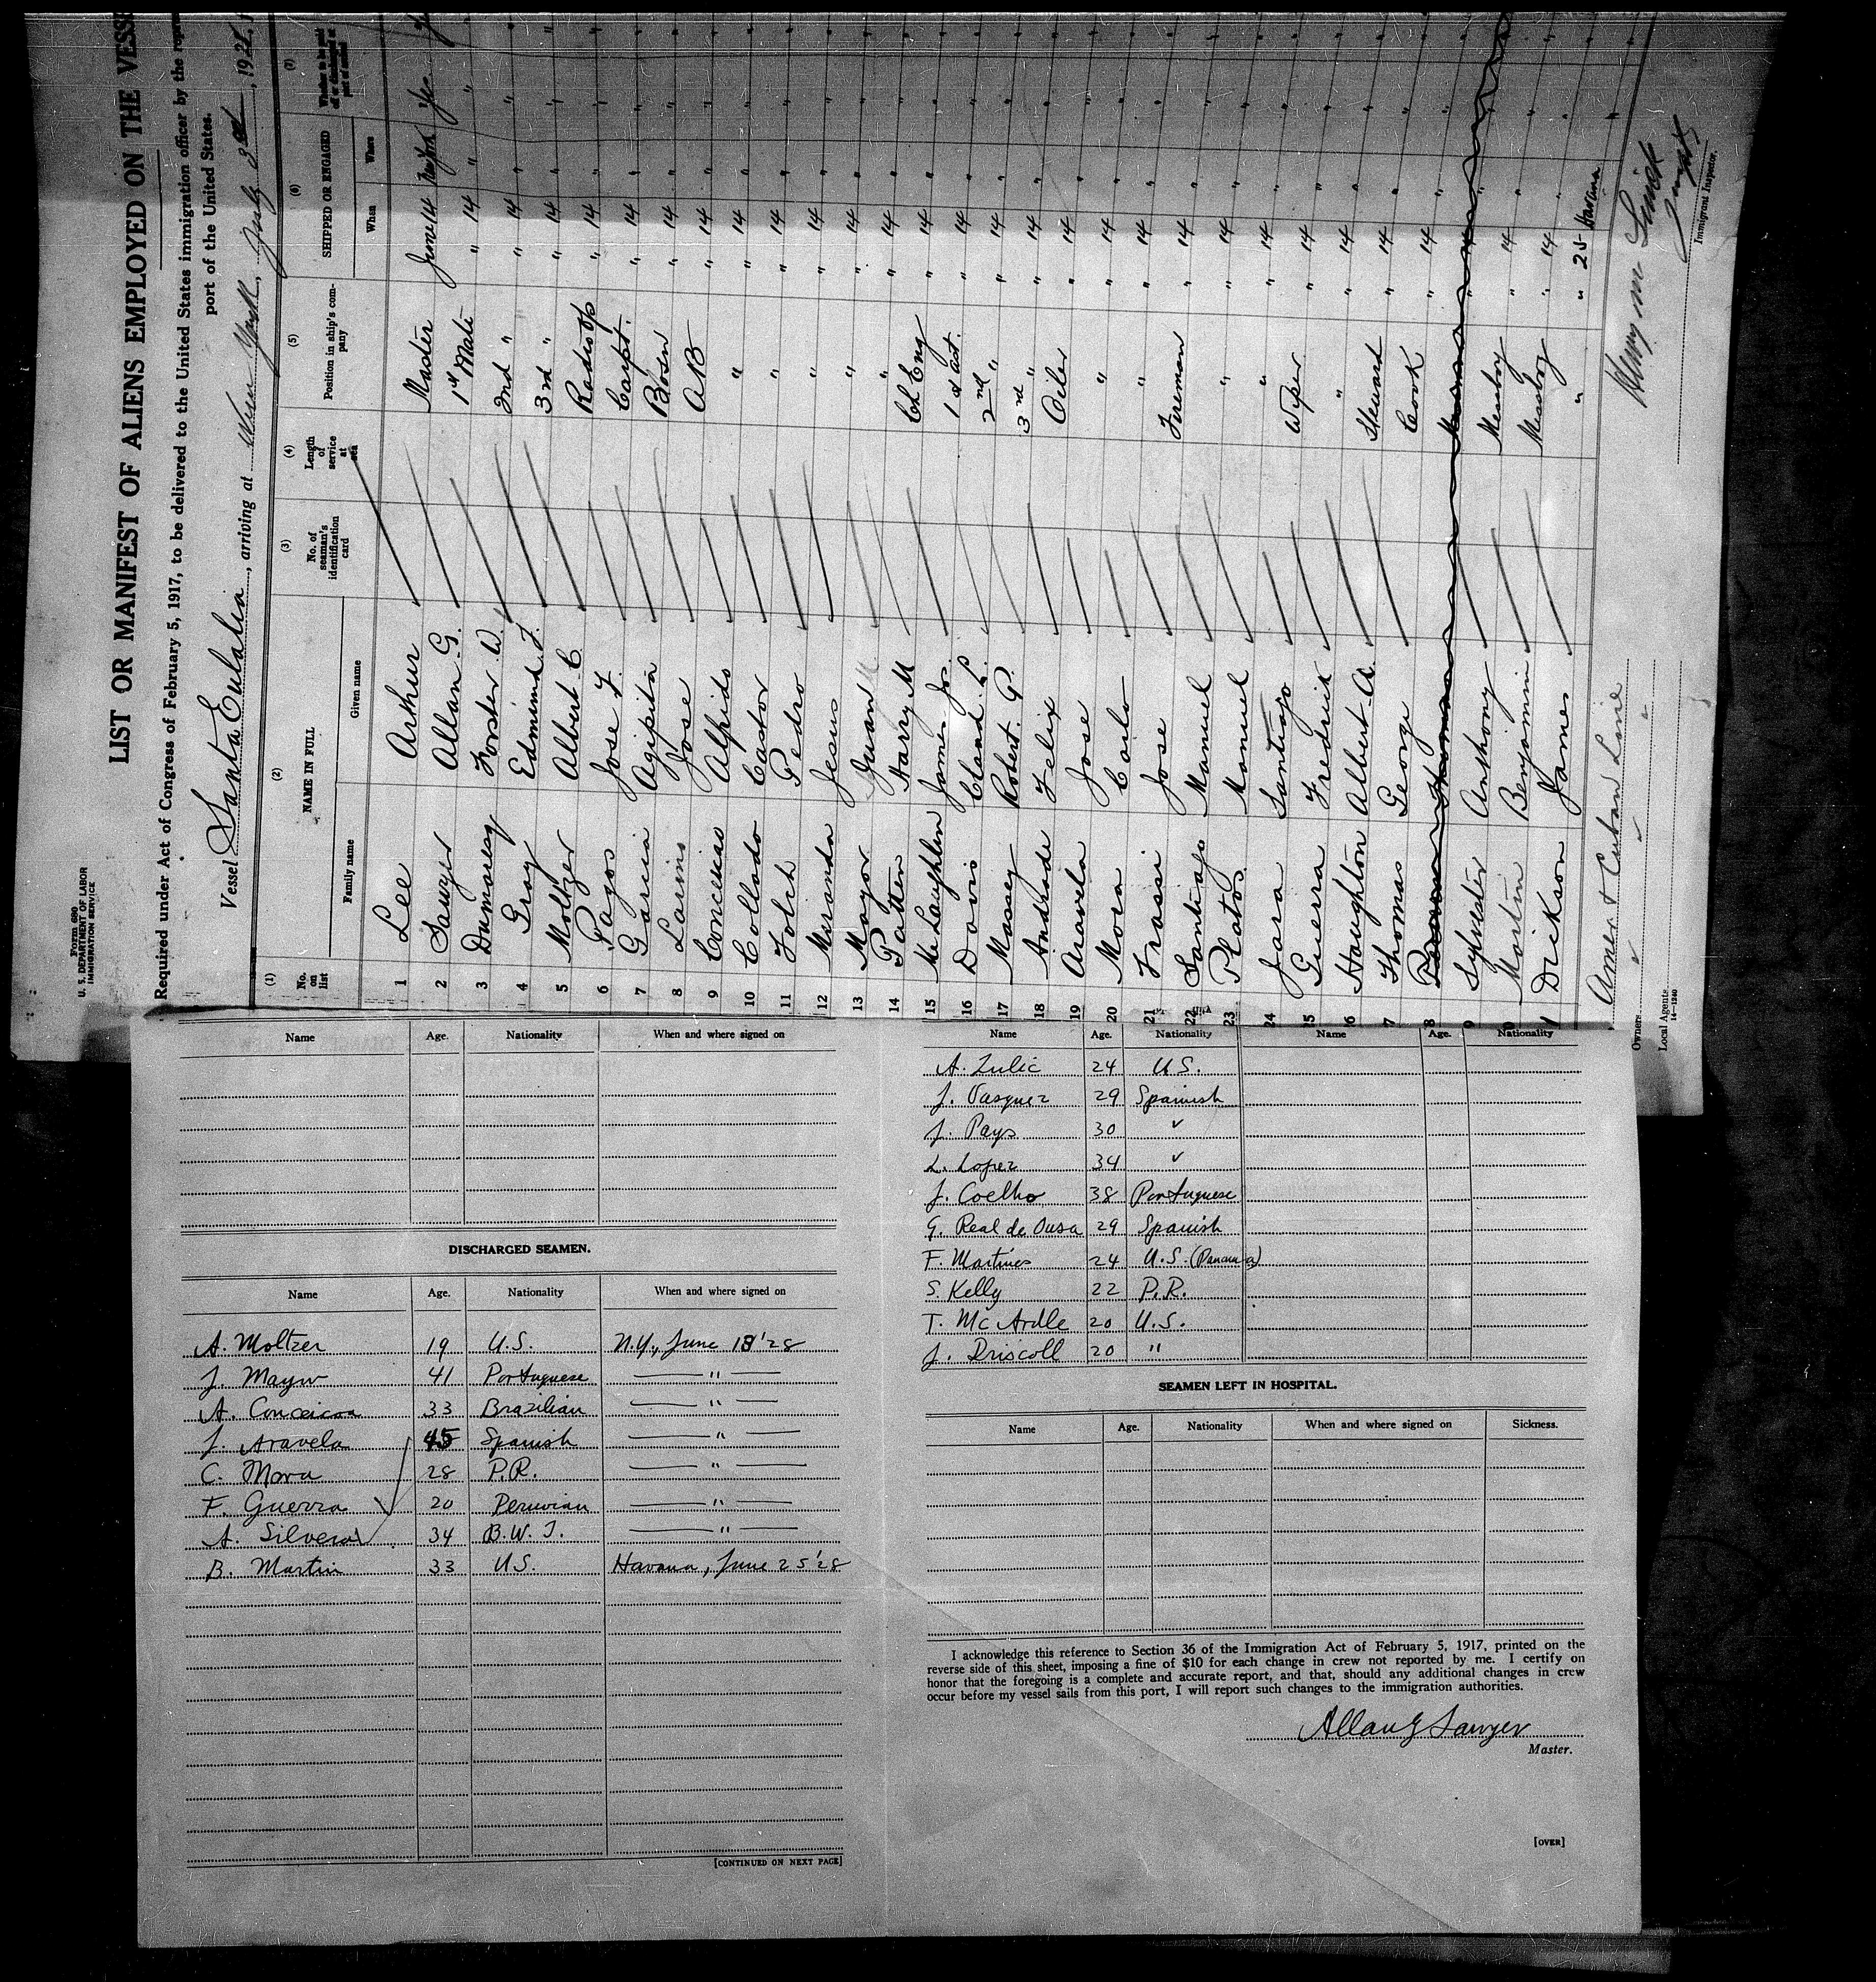 Form 680
U. S. DEPARTMENT OF LABOR
IMMIGRATION SERVICE
LIST OR MANIFEST OF ALIENS EMPLOYED ON THE VESS
Required under Act of Congress of February 5, 1917, to be delivered to the United States immigration officer by the repr
port of the United States.
Vessel Santa Eulalia, arriving at New York, July 3rd, 1928
(1) (2) (3) (4) (5) (6) (7)
No. on list NAME IN FULL No. of seaman's identification card Length of service at sea Position in ship's company SHIPPED OR ENGAGED
Family name Given name When Where
1 Lee Arthur Master June 14 New York Yes
2 Sawyer Allan G. 1st Mate " 14 " "
3 Dumaresq Forster W. 2nd " " 14 " "
4 Gray Edmund F. 3rd " " 14 " "
5 Moltzer Albert C. Radio Op " 14 " "
6 Pazos Jose F. Carpt. " 14 " "
7 Garcia Agipita Bosn " 14 " "
8 Larins Jose AB " 14 " "
9 Conceicao Alfrido " " 14 " "
10 Collado Castor " " 14 " "
11 Folch Pedro " " 14 " "
12 Miranda Jesus " " 14 " "
13 Mayor Juan " " 14 " "
14 Patten Harry M Ch Eng " 14 " "
15 McLaughlin James Jos. 1st ast. " 14 " "
16 Davis Claud L. 2nd " " 14 " "
17 Massey Robert P. 3rd " " 14 " "
18 Andrade Felix Oiler " 14 " "
19 Aravela Jose " " 14 " "
20 Mora Carlo " " 14 " "
21 Frassi Jose Fireman " 14 " "
22 Santiago Manuel " " 14 " "
23 Platos Manuel " " 14 " "
24 Jara Santiago Wiper " 14 " "
25 Guerra Fredrick " " 14 " "
26 Haughton Albert A. Steward " 14 " "
27 Thomas George Cook " 14 " "
29 Sylvester Anthony Messboy " 14 " "
30 Martin Benjamin Messboy " 14 " "
31 Drickson James " " 25 Havana
Owners Amer & Cuban Line
Local Agents " " "
14—1240
Immigrant Inspector.
Name Age. Nationality When and where signed on
DISCHARGED SEAMEN.
Name Age. Nationality When and where signed on
A. Moltzer 19 U.S. N.Y., June 18 '28
J. Mayor 41 Portuguese — " —
A. Conceicoa 33 Brazilian — " —
J. Aravela 45 Spanish — " —
C. Mora 28 P.R. — " —
F. Guerra 20 Peruvian — " —
A. Silvera 34 B.W.I. — " —
B. Martin 33 U.S. Havana, June 25 '28
[CONTINUED ON NEXT PAGE]
Name Age. Nationality Name Age. Nationality
A. Zulic 24 U.S.
J. Vasquez 29 Spanish
J. Pays 30 "
L. Lopez 34 "
J. Coelho 38 Portuguese
G. Real de Ousa 29 Spanish
F. Martines 24 U.S. (Panama)
S. Kelly 22 P.R.
T. McArdle 20 U.S.
J. Driscoll 20 "
SEAMEN LEFT IN HOSPITAL.
Name Age. Nationality When and where signed on Sickness.
I acknowledge this reference to Section 36 of the Immigration Act of February 5, 1917, printed on the
reverse side of this sheet, imposing a fine of $10 for each change in crew not reported by me. I certify on
honor that the foregoing is a complete and accurate report, and that, should any additional changes in crew
occur before my vessel sails from this port, I will report such changes to the immigration authorities.
Allan G Sawyer
Master.
[OVER]